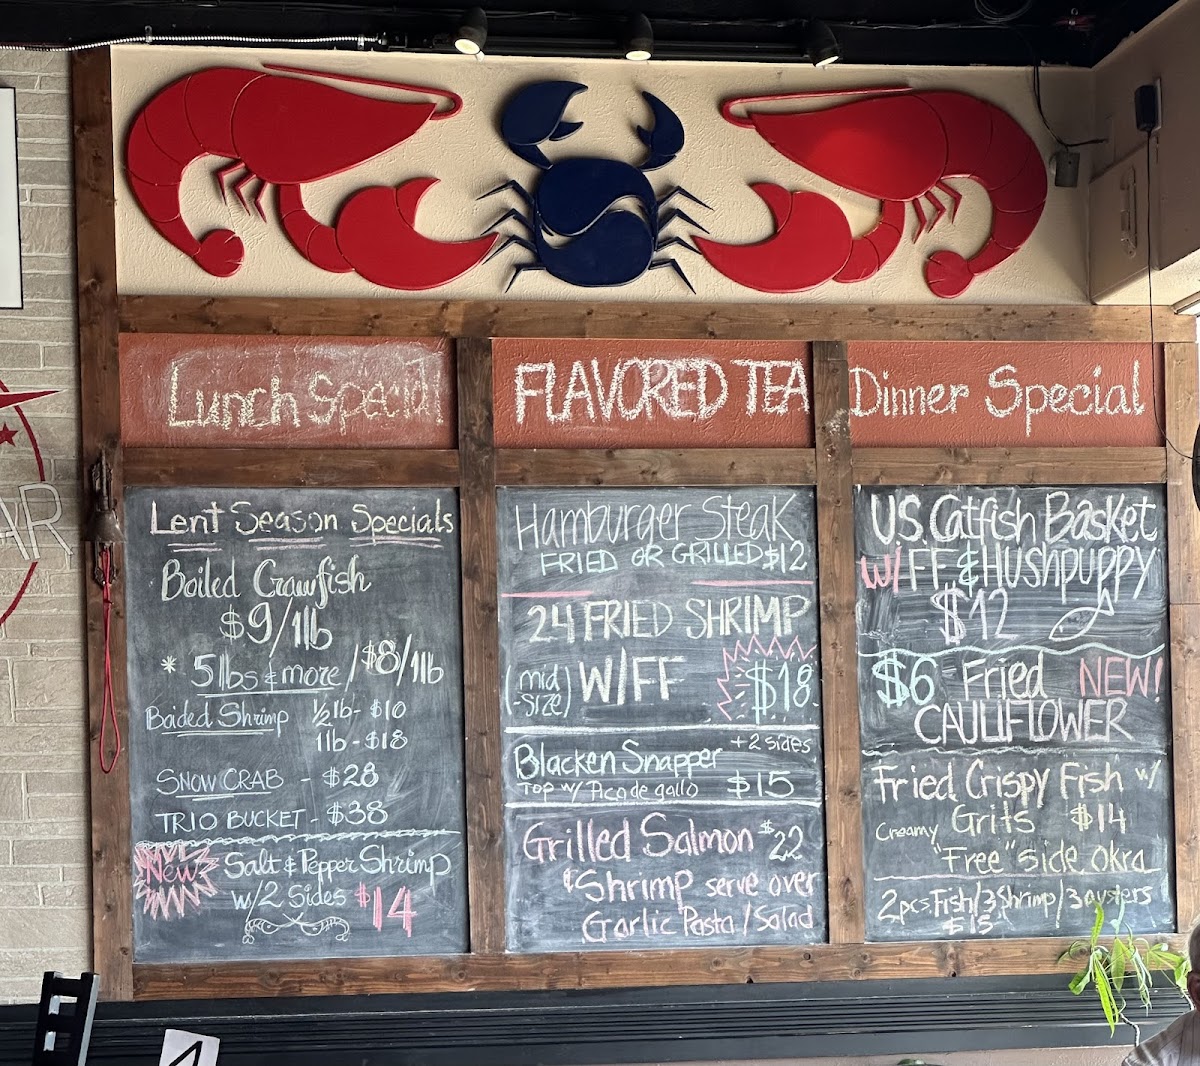 Lunch Special
FLAVORED TEA
Dinner Special
Lent Season Specials
Boiled Crawfish
$9/1lb
* 5lbs & more / $8/1lb
Boided Shrimp ½lb - $10
1lb - $18
SNOW CRAB - $28
TRIO BUCKET - $38
New Salt & Pepper Shrimp
w/2 Sides $14
Hamburger Steak
FRIED OR GRILLED $12
24 FRIED SHRIMP
(mid-size) W/FF $18
Blacken Snapper +2 sides
TOP w/ Pico de gallo $15
Grilled Salmon $22
& Shrimp serve over
Garlic Pasta / Salad
US. Catfish Basket
W/ FF & Hushpuppy
$12
$6 Fried NEW!
CAULIFLOWER
Fried Crispy Fish w/
Creamy Grits $14
"Free" side okra
2pcs. Fish/3 Shrimp/3 oysters
$15
AR